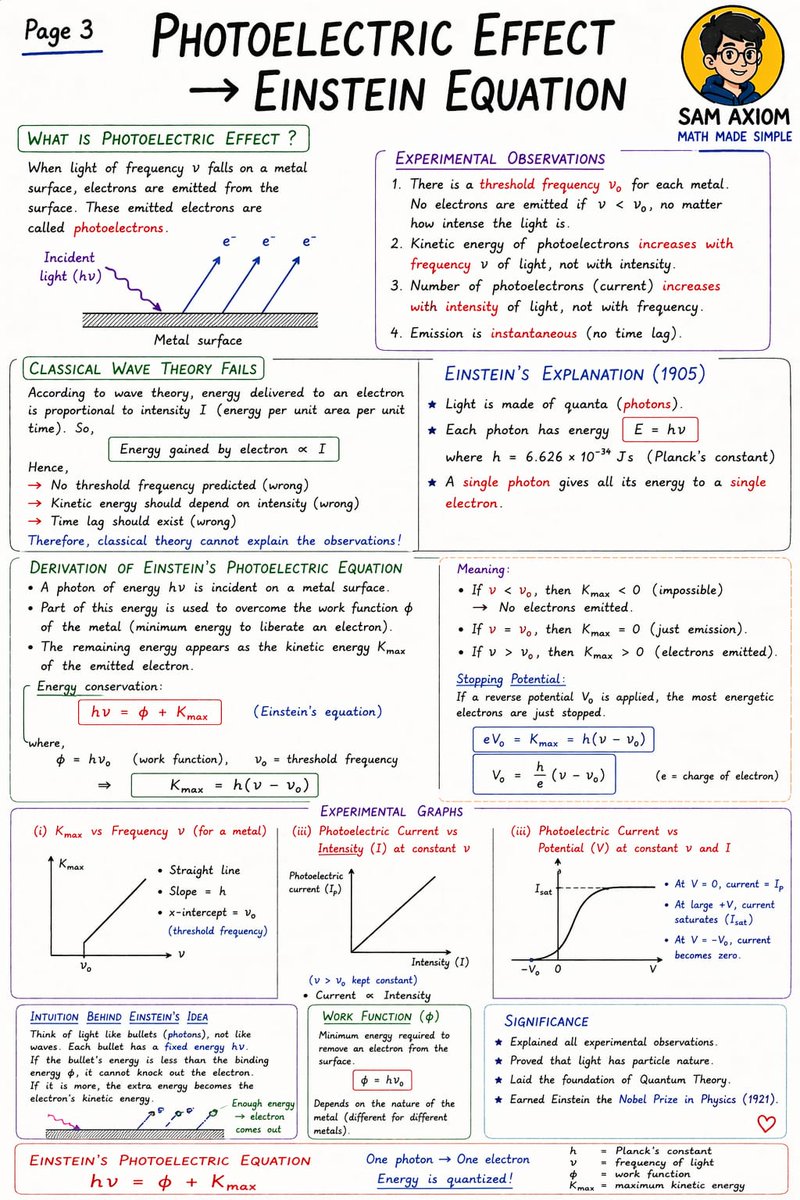 Page 3
PHOTOELECTRIC EFFECT
→ EINSTEIN EQUATION
SAM AXIOM
MATH MADE SIMPLE
WHAT IS PHOTOELECTRIC EFFECT ?
When light of frequency ν falls on a metal
surface, electrons are emitted from the
surface. These emitted electrons are
called photoelectrons.
e⁻ e⁻ e⁻
Incident
light (hν)
Metal surface
EXPERIMENTAL OBSERVATIONS
1. There is a threshold frequency ν₀ for each metal.
No electrons are emitted if ν < ν₀, no matter
how intense the light is.
2. Kinetic energy of photoelectrons increases with
frequency ν of light, not with intensity.
3. Number of photoelectrons (current) increases
with intensity of light, not with frequency.
4. Emission is instantaneous (no time lag).
CLASSICAL WAVE THEORY FAILS
According to wave theory, energy delivered to an electron
is proportional to intensity I (energy per unit area per unit
time). So,
Energy gained by electron ∝ I
Hence,
→ No threshold frequency predicted (wrong)
→ Kinetic energy should depend on intensity (wrong)
→ Time lag should exist (wrong)
Therefore, classical theory cannot explain the observations!
EINSTEIN'S EXPLANATION (1905)
★ Light is made of quanta (photons).
★ Each photon has energy E = hν
where h = 6.626 × 10⁻³⁴ Js (Planck's constant)
★ A single photon gives all its energy to a single
electron.
DERIVATION OF EINSTEIN'S PHOTOELECTRIC EQUATION
• A photon of energy hν is incident on a metal surface.
• Part of this energy is used to overcome the work function ϕ
of the metal (minimum energy to liberate an electron).
• The remaining energy appears as the kinetic energy Kmax
of the emitted electron.
Energy conservation:
hν = ϕ + Kmax (Einstein's equation)
where,
ϕ = hν₀ (work function), ν₀ = threshold frequency
⇒ Kmax = h(ν − ν₀)
Meaning:
• If ν < ν₀, then Kmax < 0 (impossible)
→ No electrons emitted.
• If ν = ν₀, then Kmax = 0 (just emission).
• If ν > ν₀, then Kmax > 0 (electrons emitted).
Stopping Potential:
If a reverse potential V₀ is applied, the most energetic
electrons are just stopped.
eV₀ = Kmax = h(ν − ν₀)
V₀ = h/e (ν − ν₀) (e = charge of electron)
EXPERIMENTAL GRAPHS
(i) Kmax vs Frequency ν (for a metal)
Kmax
• Straight line
• Slope = h
• x-intercept = ν₀
(threshold frequency)
ν₀
ν
(iii) Photoelectric Current vs
Intensity (I) at constant ν
Photoelectric
current (Ip)
Intensity (I)
(ν > ν₀ kept constant)
• Current ∝ Intensity
(iii) Photoelectric Current vs
Potential (V) at constant ν and I
Isat
I
−V₀ 0 V
• At V = 0, current = Ip
• At large +V, current
saturates (Isat)
• At V = −V₀, current
becomes zero.
INTUITION BEHIND EINSTEIN'S IDEA
Think of light like bullets (photons), not like
waves. Each bullet has a fixed energy hν.
If the bullet's energy is less than the binding
energy ϕ, it cannot knock out the electron.
If it is more, the extra energy becomes the
electron's kinetic energy.
Enough energy
→ electron
comes out
WORK FUNCTION (ϕ)
Minimum energy required to
remove an electron from the
surface.
ϕ = hν₀
Depends on the nature of the
metal (different for different
metals).
SIGNIFICANCE
★ Explained all experimental observations.
★ Proved that light has particle nature.
★ Laid the foundation of Quantum Theory.
★ Earned Einstein the Nobel Prize in Physics (1921).
EINSTEIN'S PHOTOELECTRIC EQUATION
hν = ϕ + Kmax
One photon → One electron
Energy is quantized!
h = Planck's constant
ν = frequency of light
ϕ = work function
Kmax = maximum kinetic energy